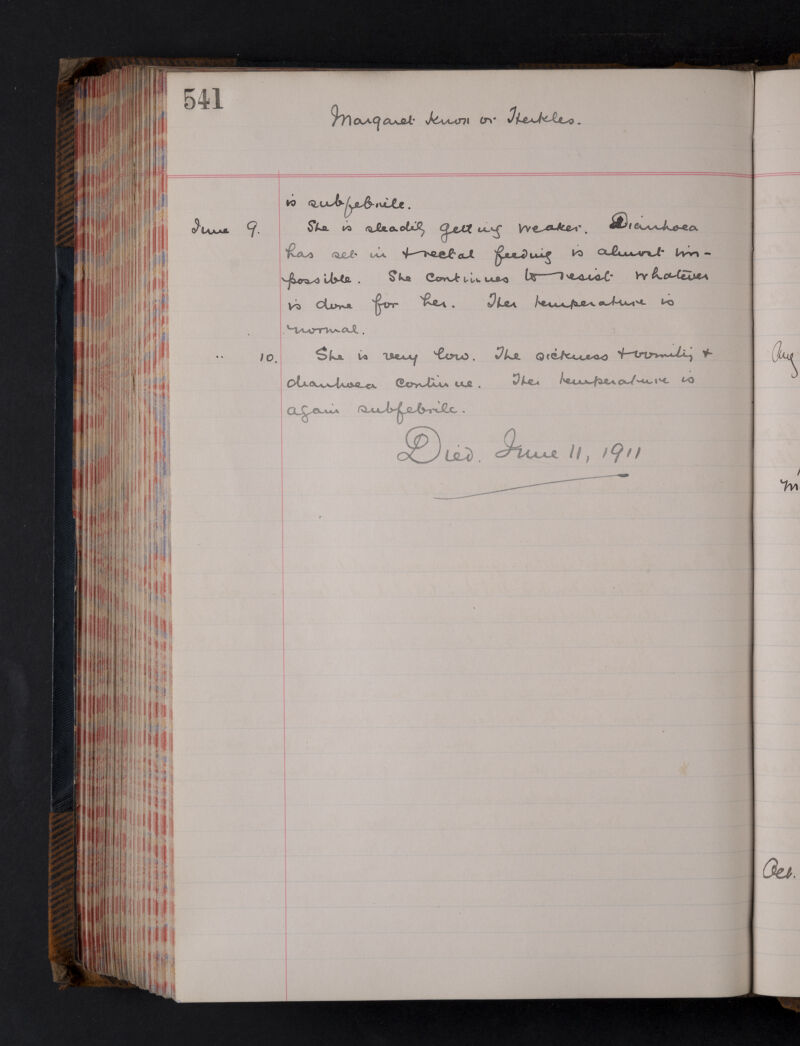 541
Margaret Knox or Herkles.
is subfebrile.
June 9. She is steadily getting weaker. Diarrhoea
has set in & rectal feeding is almost im-
possible. She continues to resist whatever
is done for her. Her temperature is
normal.
" 10. She is very low. The sickness & vomiting &
diarrhoea continue. Her temperature is
again subfebrile.
Died. June 11, 1911
Aug
M
Oct.